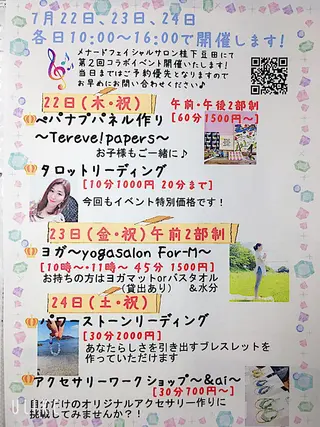 7月22日、23日、24日
各日10:00~16:00で開催します!
メナードフェイシャルサロン桂下豆田にて
第2回コラボイベント開催いたします!
当日まではご予約優先となりますので
お早めにお問い合わせください♪
22日(木・祝) 午前・午後2部制
ペパナプパネル作り [60分1500円~]
~Tereve!papers~
お子様もご一緒に♪
タロットリーディング
[10分1000円 20分まで]
今回もイベント特別価格です!
23日(金・祝)午前2部制
ヨガ~yogasalon For-M~
[10時~・11時~ 45分 1500円]
お持ちの方はヨガマットorバスタオル
(貸出あり) &水分
24日(土・祝)
パワーストーンリーディング
[30分2000円]
あなたらしさを引き出すブレスレットを
作っていただけます
アクセサリーワークショップ~&ai~
[30分700円~]
自分だけのオリジナルアクセサリー作りに
挑戦してみませんか?!